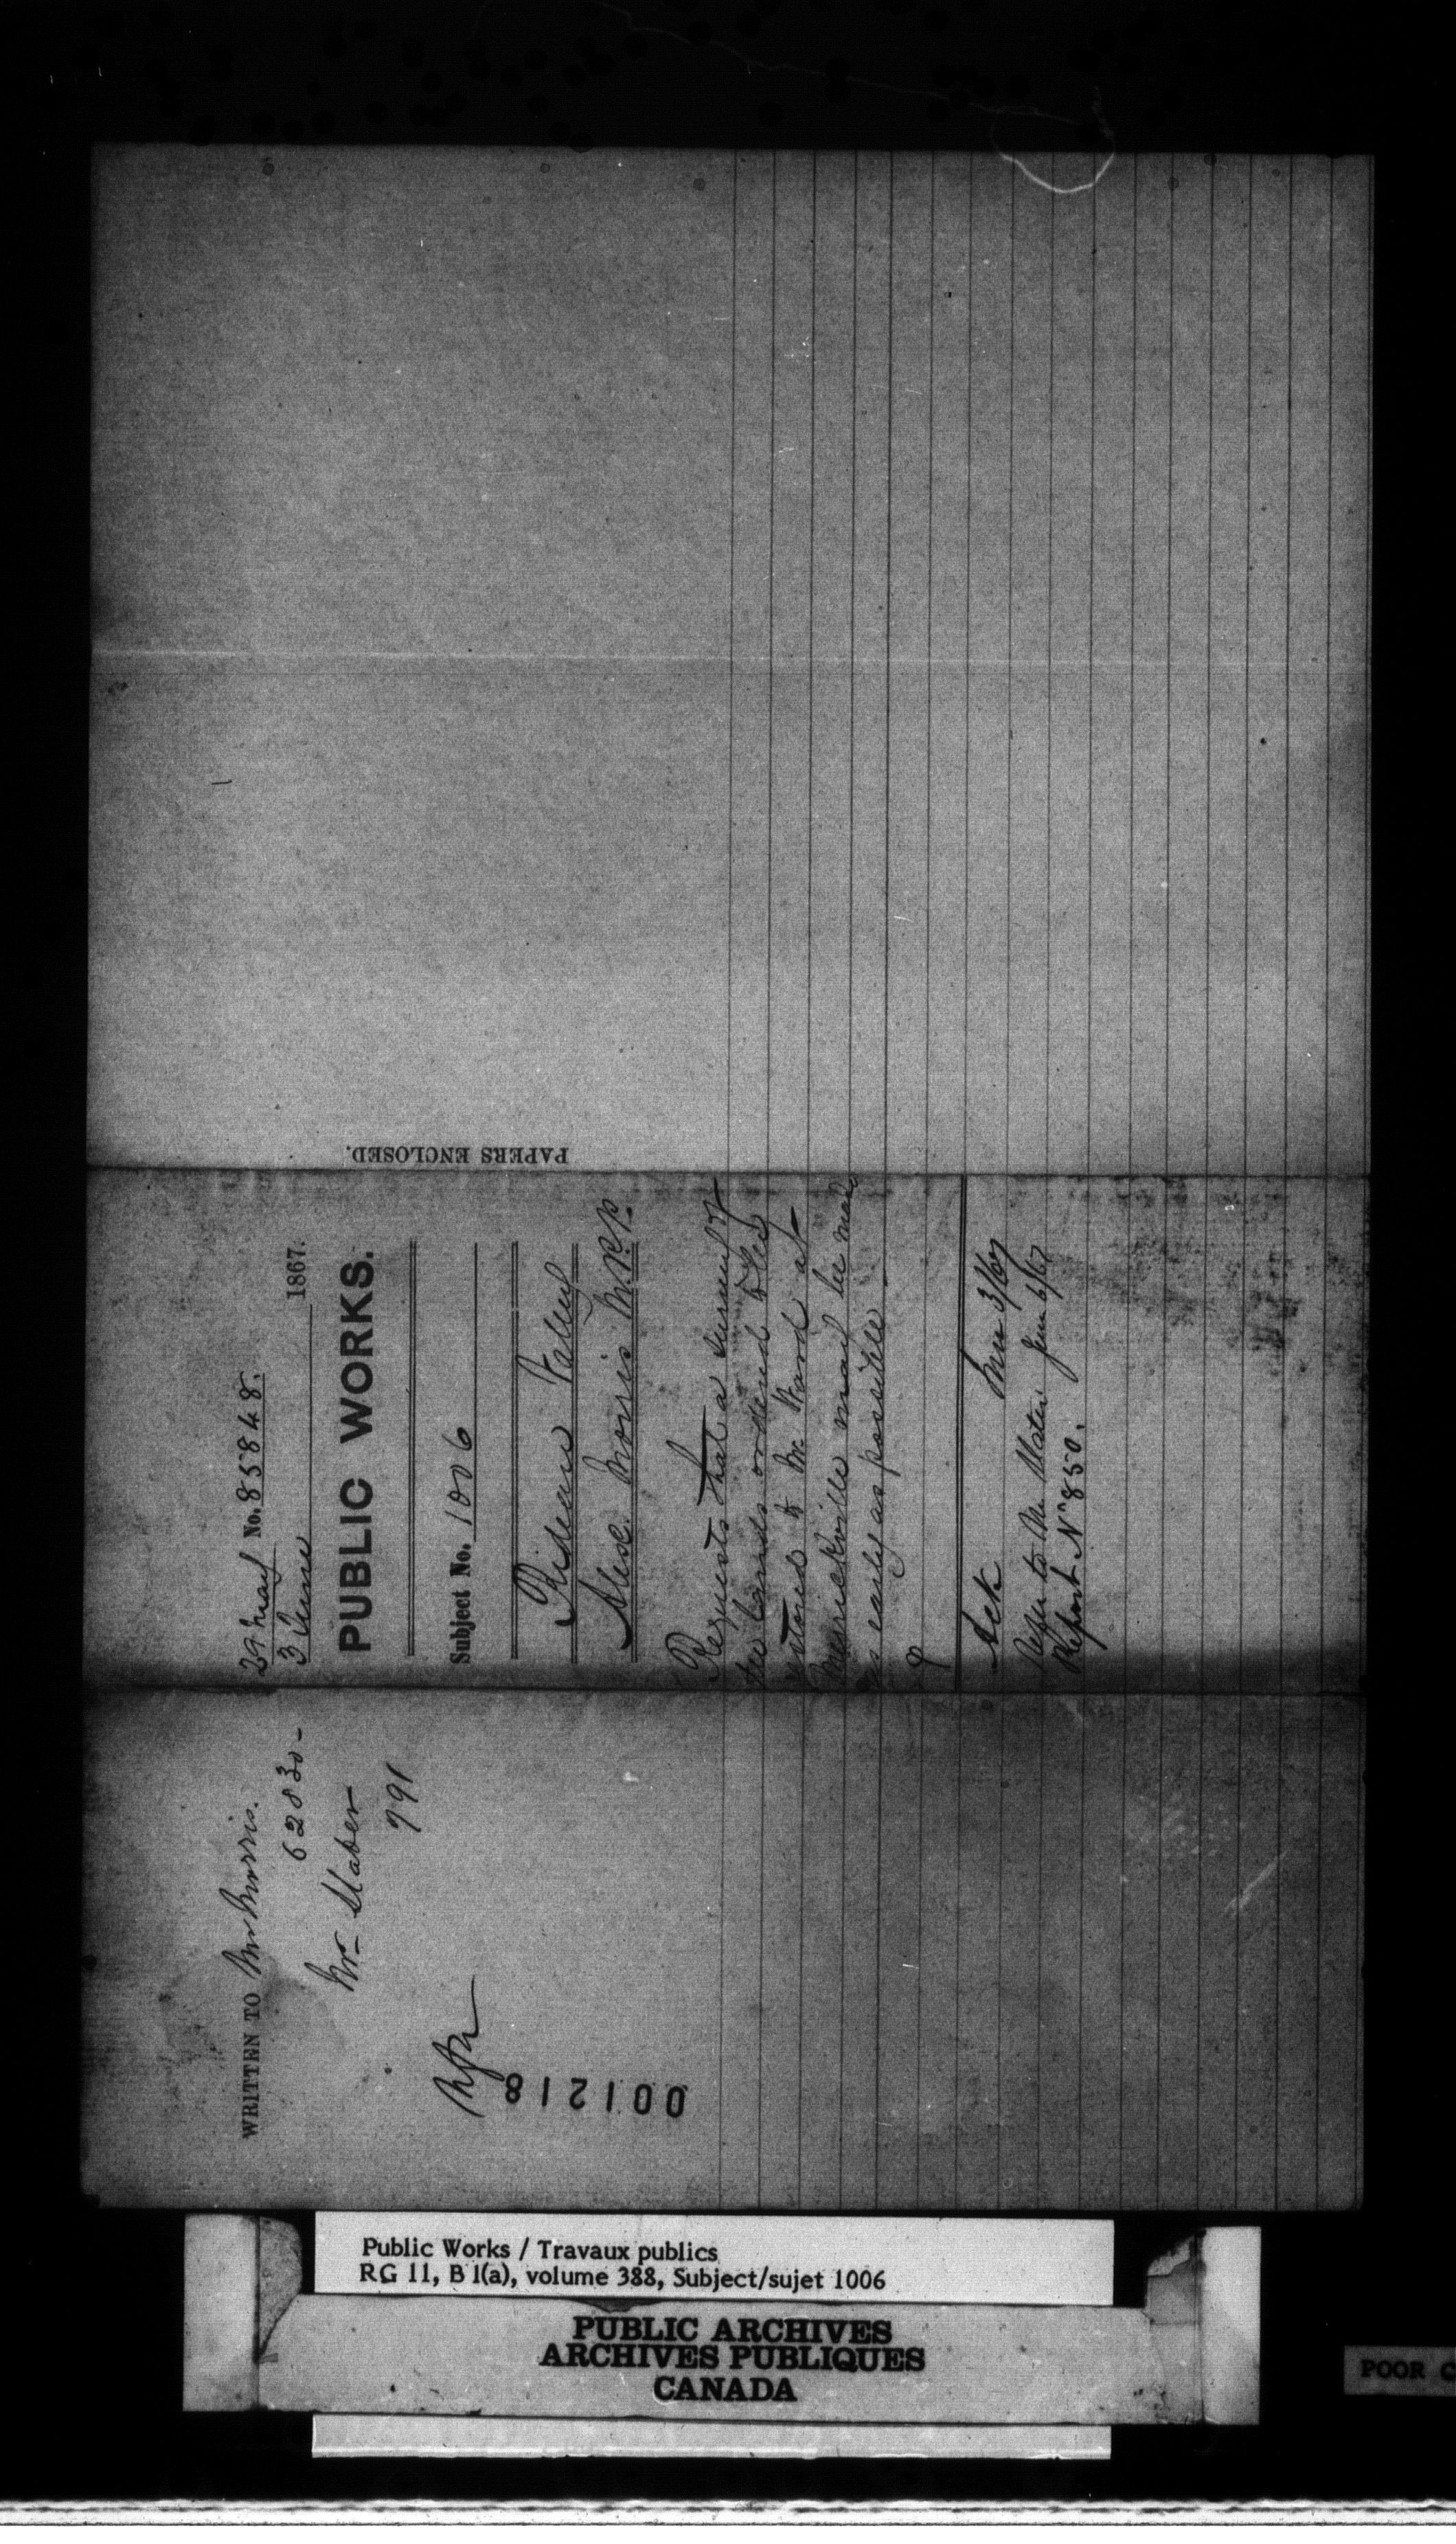 PAPERS ENCLOSED.
29 May No. 85848.
3 June 1867.
PUBLIC WORKS.
Subject No. 1006
Rideau Valley
Alex. Morris M.P.P.
Requests that a survey of
the lands ordered to be
restored to Mr Ward at
Merrickville may be made
as early as possible
Ack June 3/67
Refer to Mr Slater June 6/67
Report No 850.
WRITTEN TO Mr Morris.
62830-
Mr Slater
791
001218
Public Works / Travaux publics
RG 11, B 1(a), volume 388, Subject/sujet 1006
PUBLIC ARCHIVES
ARCHIVES PUBLIQUES
CANADA
POOR